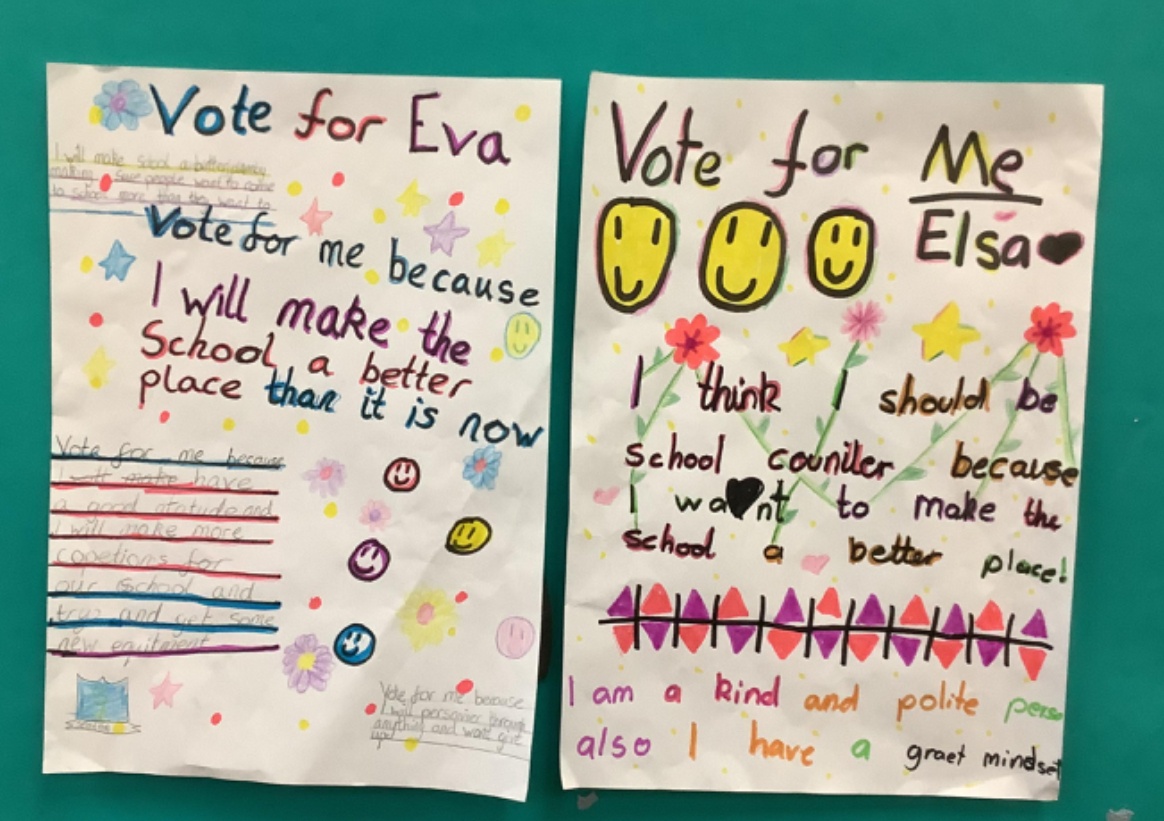 Vote for Eva
I will make school a better by
making sure people want to come
to school more than they want to
Vote for me because
I will make the
School a better
place than it is now
Vote for me because
I will make have
a good atatude and
I will make more
copetions for
our school and
try and get some
new equitment
Vote for me because
I will personier through
anything and wont give
up!
Vote for Me
Elsa
I think I should be
school couniler because
I wa nt to make the
school a better place!
I am a kind and polite perso
also I have a graet mindset